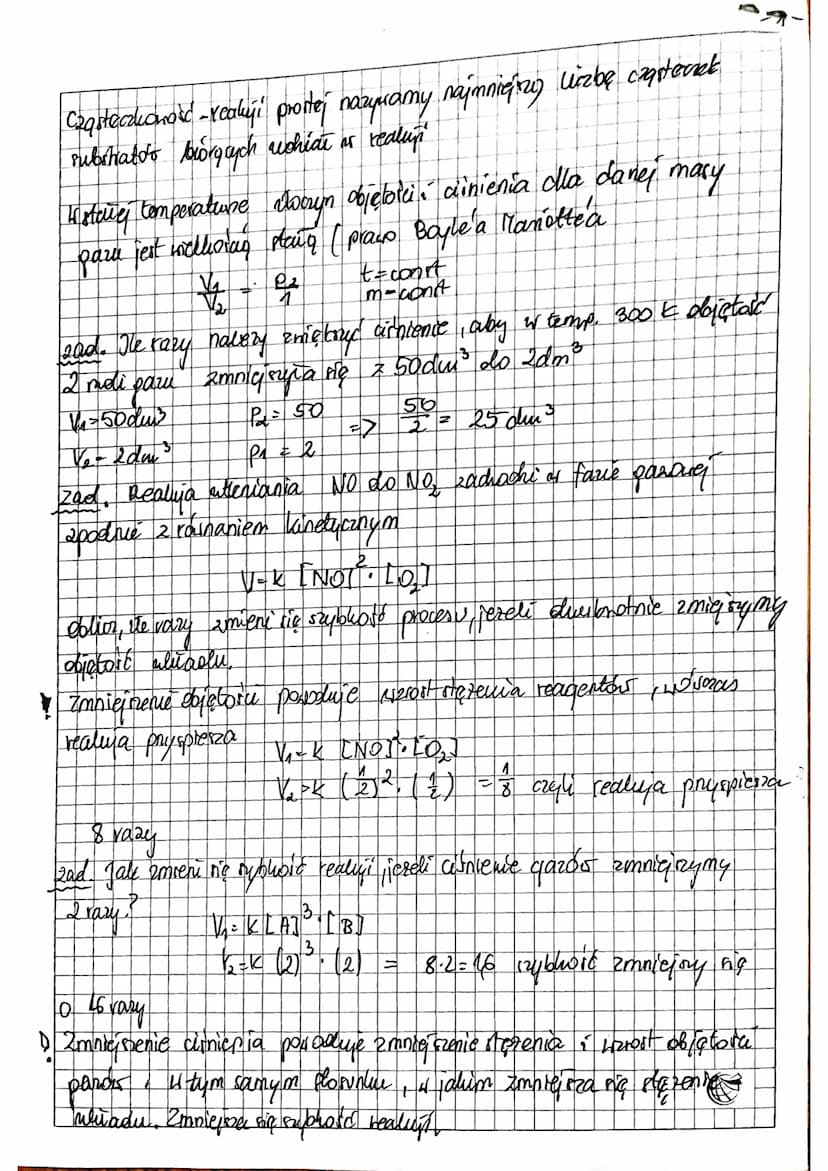 Cząsteczkowość - reakcji prostej nazywamy najmniejszą liczbę cząsteczek
substratów biorących udział w reakcji
W stałej temperaturze iloczyn objętości i ciśnienia dla danej masy
gazu jest wielkością stałą ( prawo Boyle'a Mariotte'a
V1/V2 = P2/1 t=const
m-const
zad. Ile razy należy zwiększyć ciśnienie, aby w temp. 300 K objętość
2 moli gazu zmniejszyła się z 50dm³ do 2dm³
V1=50dm³ P2= 50 => 50/2 = 25 dm³
V2- 2dm³ P1 = 2
zad. Reakcja utleniania NO do NO2 zachodzi w fazie gazowej
zgodnie z równaniem kinetycznym
V=k [NO]²·[O2]
oblicz, ile razy zmieni się szybkość procesu, jeżeli dwukrotnie zmniejszymy
objętość układu.
! Zmniejszenie objętości powoduje wzrost stężenia reagentów, wówczas
reakcja przyspiesza V1=k [NO]²·[O2]
V2=k (1/2)²·(1/2) = 1/8 czyli reakcja przyspiesza
8 razy
zad. Jak zmieni się szybkość reakcji jeżeli ciśnienie gazów zmniejszymy
2 razy? V1=k[A]³·[B]
V2=k (2)³·(2) = 8·2=16 szybkość zmniejszy się
o 16 razy
! Zmniejszenie ciśnienia powoduje zmniejszenie stężenia i wzrost objętości
gazów i w tym samym stosunku, w jakim zmniejsza się stężenie
układu. Zmniejsza się szybkość reakcji.